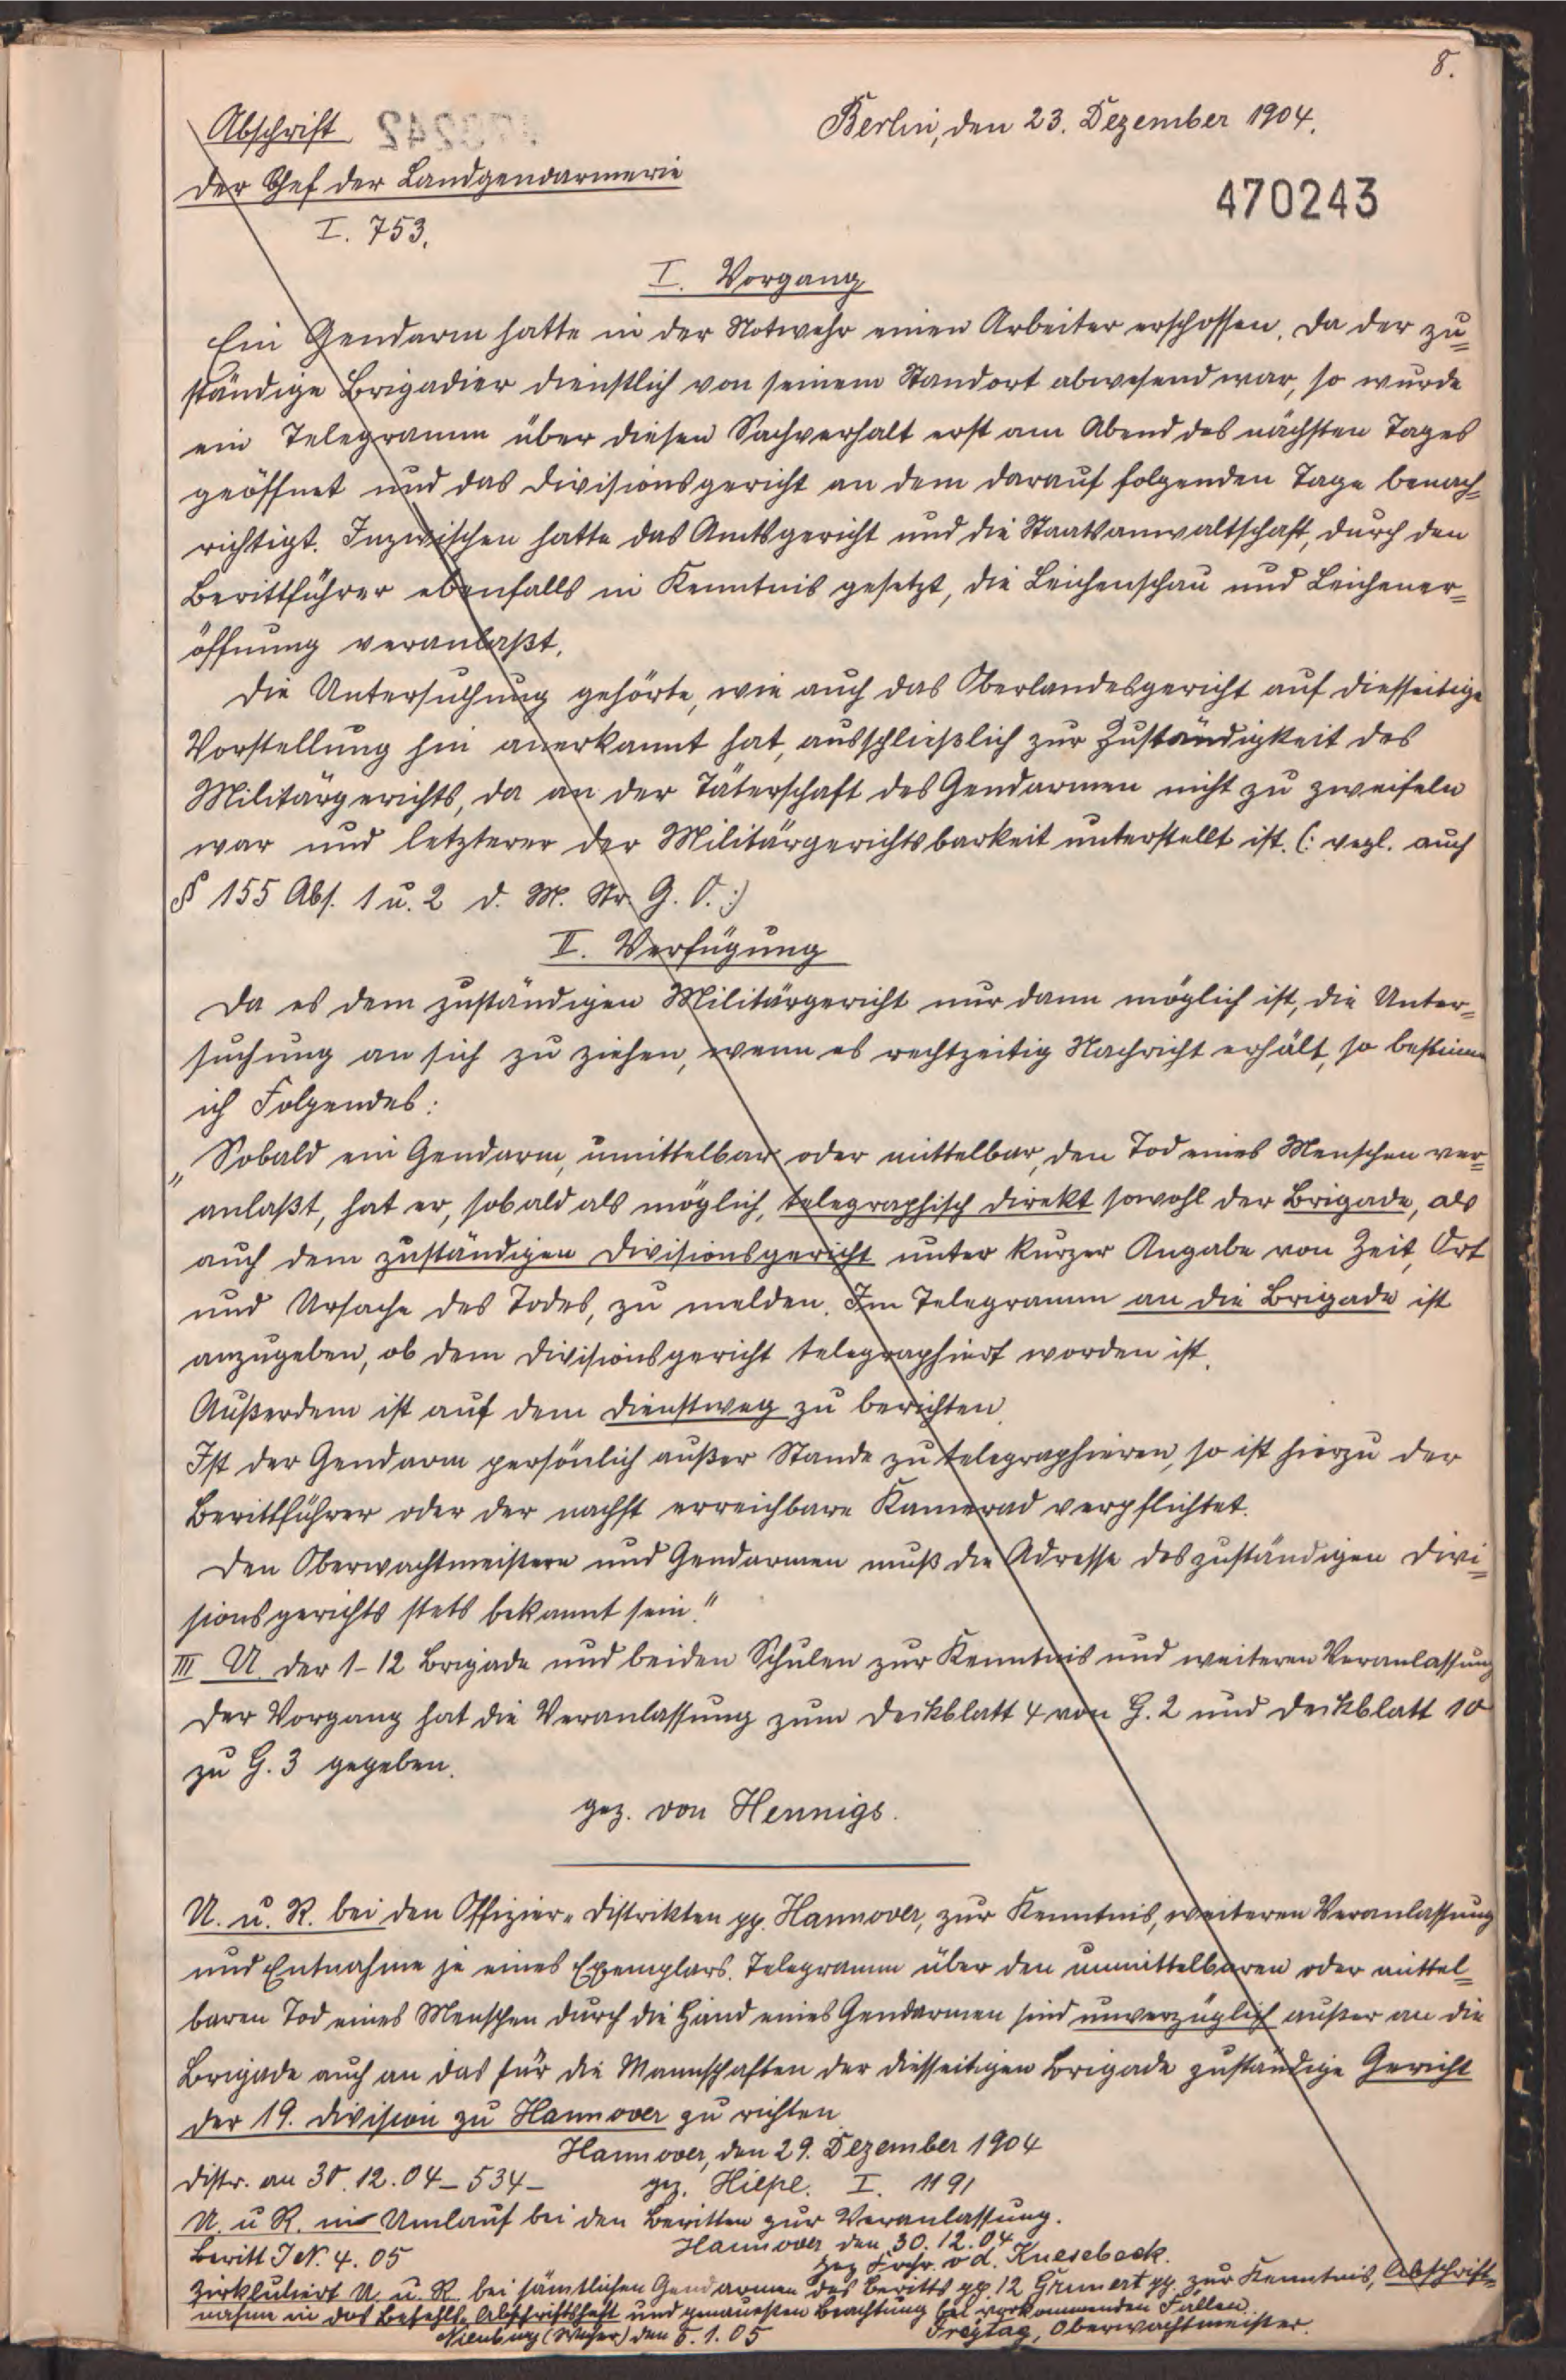 8.
Abschrift
Berlin, den 23. Dezember 1904.
Der Chef der Landgendarmerie
470243
I. 753.
I. Vorgang
Ein Gendarm hatte in der Notwehr einen Arbeiter erschossen. Da der zu=
ständige Brigadier dienstlich von seinem Standort abwesend war, so wurde
ein Telegramm über diesen Sachverhalt erst am Abend des nächsten Tages
geöffnet und das Divisionsgericht an dem darauf folgenden Tage benach=
richtigt. Inzwischen hatte das Amtsgericht und die Staatsanwaltschaft, durch den
Berittführer ebenfalls in Kenntnis gesetzt, die Leichenschau und Leichener=
öffnung veranlaßt.
Die Untersuchung gehörte, wie auch das Oberlandesgericht auf diesseitige
Vorstellung hin anerkannt hat, ausschließlich zur Zuständigkeit des
Militärgerichts, da an der Täterschaft des Gendarmen nicht zu zweifeln
war und letzterer der Militärgerichtsbarkeit unterstellt ist. (: vergl. auch
§ 155 Abs. 1 u. 2 d. M. Str. G. O. :)
II. Verfügung
Da es dem zuständigen Militärgericht nur dann möglich ist, die Unter=
suchung an sich zu ziehen, wenn es rechtzeitig Nachricht erhält, so bestimme
ich Folgendes:
„Sobald ein Gendarm, unmittelbar oder mittelbar, den Tod eines Menschen ver=
anlaßt, hat er, sobald als möglich, telegraphisch direkt sowohl der Brigade, als
auch dem zuständigen Divisionsgericht unter kurzer Angabe von Zeit, Ort
und Ursache des Todes, zu melden. Im Telegramm an die Brigade ist
anzugeben, ob dem Divisionsgericht telegraphiert worden ist.
Außerdem ist auf dem Dienstweg zu berichten.
Ist der Gendarm persönlich außer Stande zu telegraphieren, so ist hierzu der
Berittführer oder der nachst erreichbare Kamerad verpflichtet.
Den Oberwachtmeistern und Gendarmen muß die Adresse des zuständigen Divi=
sionsgerichts stets bekannt sein."
III U. der 1-12 Brigade und beiden Schulen zur Kenntnis und weiteren Veranlassung
Der Vorgang hat die Veranlassung zum Deckblatt 4 von G. 2 und Deckblatt 10
zu G. 3 gegeben.
gez. von Hennigs.
U. u. R. bei den Offizier-Distrikten pp. Hannover, zur Kenntnis, weiteren Veranlassung
und Entnahme je eines Exemplars. Telegramm über den unmittelbaren oder mittel=
baren Tod eines Menschen durch die Hand eines Gendarmen sind unverzüglich außer an die
Brigade auch an das für die Mannschaften der diesseitigen Brigade zuständige Gericht
der 19. Division zu Hannover zu richten.
Hannover, den 29. Dezember 1904
Distr. an 30.12.04 – 534 –
gez. Hiepe. I. 1191
U. u R. im Umlauf bei den Beritten zur Veranlassung.
Hannover den 30.12.04
Beritt J N. 4. 05
gez Frhr. v d. Knesebeck.
Zirkuliert U. u. R. bei sämtlichen Gendarmen des Beritts pp. 12 Grunert pp. zur Kenntnis, Abschrift=
nahme in das Befehls-Abschriftsheft und genauesten Beachtung bei vorkommenden Fällen.
Nienburg (Weser) den 5.1.05
Freytag, Oberwachtmeister.